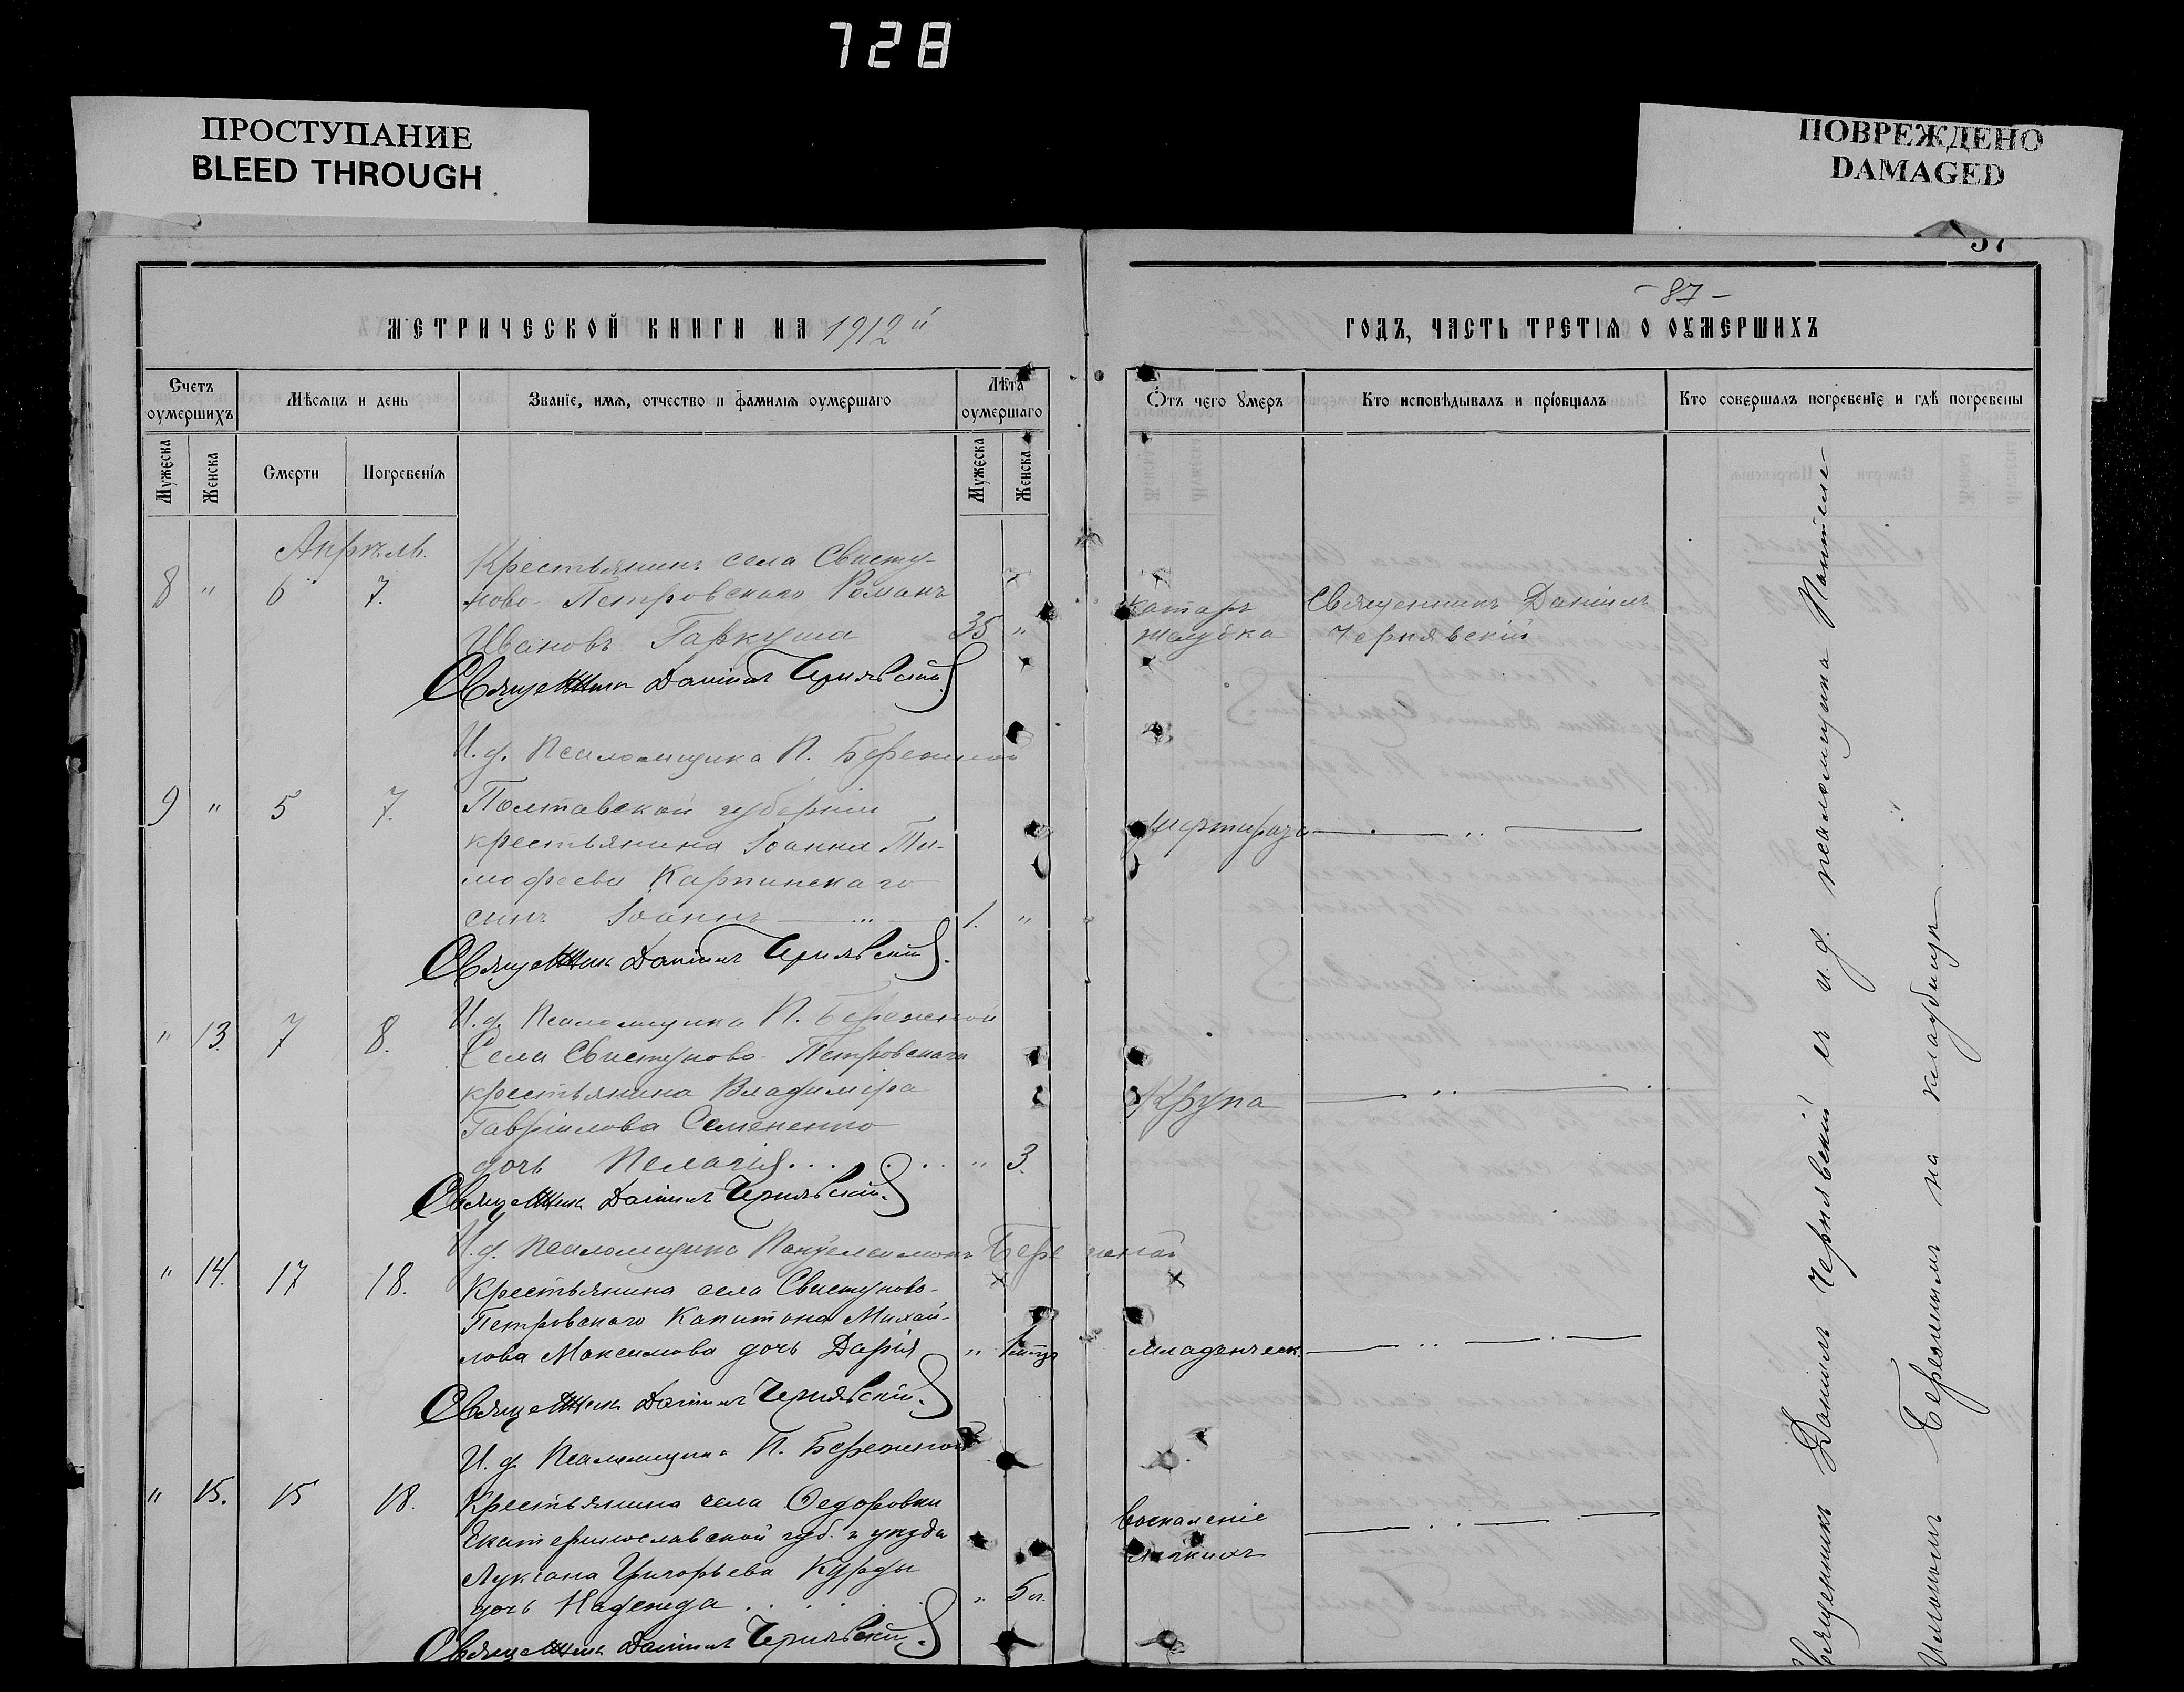 728
ПРОСТУПАНИЕ
BLEED THROUGH
ПОВРЕЖДЕНО
DAMAGED
57
МЕТРИЧЕСКОЙ КНИГИ НА 1912й
Счетъ оумершихъ
Мужеска
Женска
Мѣсяцъ и день
Смерти
Погребенія
Званіе, имя, отчество и фамилія оумершаго
Лѣта оумершаго
Мужеска
Женска
Апрѣль.
8 " 6 7. Крестьянинъ села Свисту-
ново-Петровскаго Романъ
Ивановъ Гаркуша 35 "
Священникъ Даніилъ Чернявскій.
И. д. Псаломщика П. Бережной
9 " 5 7. Полтавской губерніи
крестьянина Іоанна Ти-
мофеева Карпинскаго
сынъ Іоаннъ 1. "
Священникъ Даніилъ Чернявскій.
И. д. Псаломщика П. Бережной
" 13. 7 8. Села Свистуново-Петровскаго
крестьянина Владиміра
Гавріилова Семененко
дочь Пелагія " 3.
Священникъ Даніилъ Чернявскій.
И. д. Псаломщика Пантелеимонъ Бережной
" 14. 17 18. Крестьянина села Свистуново-
Петровскаго Капитона Михай-
лова Максимова дочь Дарія "
Священникъ Даніилъ Чернявскій.
И. д. Псаломщика П. Бережной
" 15. 15 18. Крестьянина села Федоровки
Екатеринославской губ. и уѣзда
Лукіана Григорьева Курды
дочь Надежда " 5 л.
Священникъ Даніилъ Чернявскій.
- 87 -
ГОДЪ, ЧАСТЬ ТРЕТІЯ О ОУМЕРШИХЪ
Отъ чего умеръ
Кто исповѣдывалъ и пріобщалъ
Кто совершалъ погребеніе и гдѣ погребены
Катаръ Священникъ Даніилъ
желудка Чернявскій
Крупа
младенческ.
Воспаленіе
легкихъ
Священникъ Даніилъ Чернявскій съ и. д. псаломщика Пантеле-
имономъ Бережнымъ на кладбищѣ.